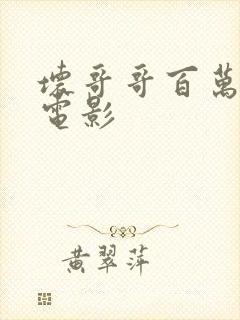 壞哥哥百萬
電影
黄翠萍